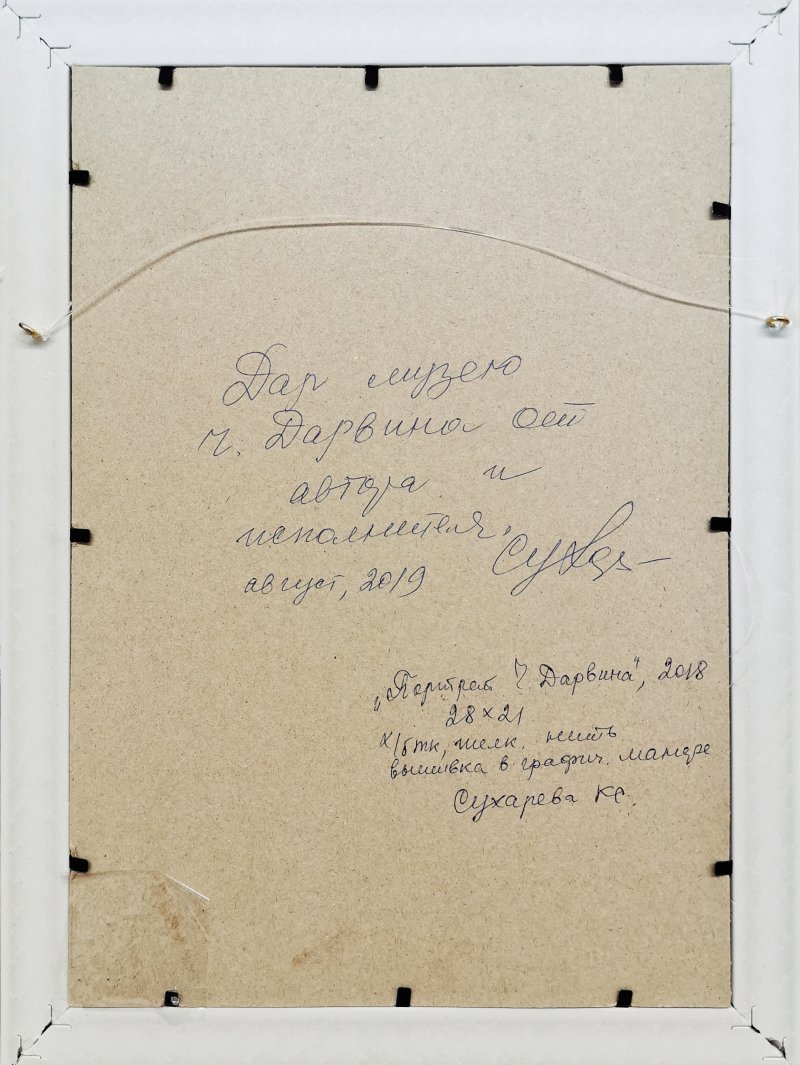 Дар музею
Ч. Дарвина от
автора и
исполнителя.
август, 2019
„Портрет Ч. Дарвина", 2018
28×21
х/б тк, шелк. нить
вышивка в графич. манере
Сухарева КС.